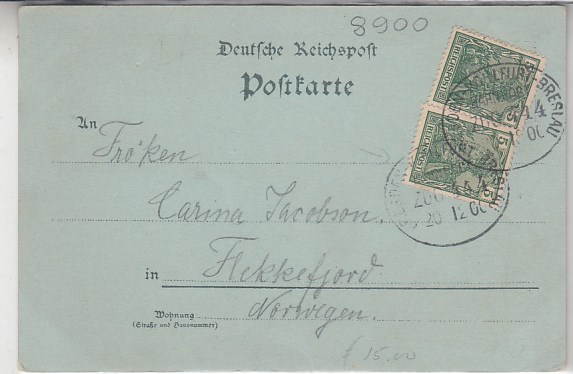 8900
Deutsche Reichspost
Postkarte
An
Fröken
Carina Jacobson.
in Flekkefjord.
Norwegen.
Wohnung
(Straße und Hausnummer)
£ 15.00
5
5
BRESLAU
14
ZUG
20 12 00